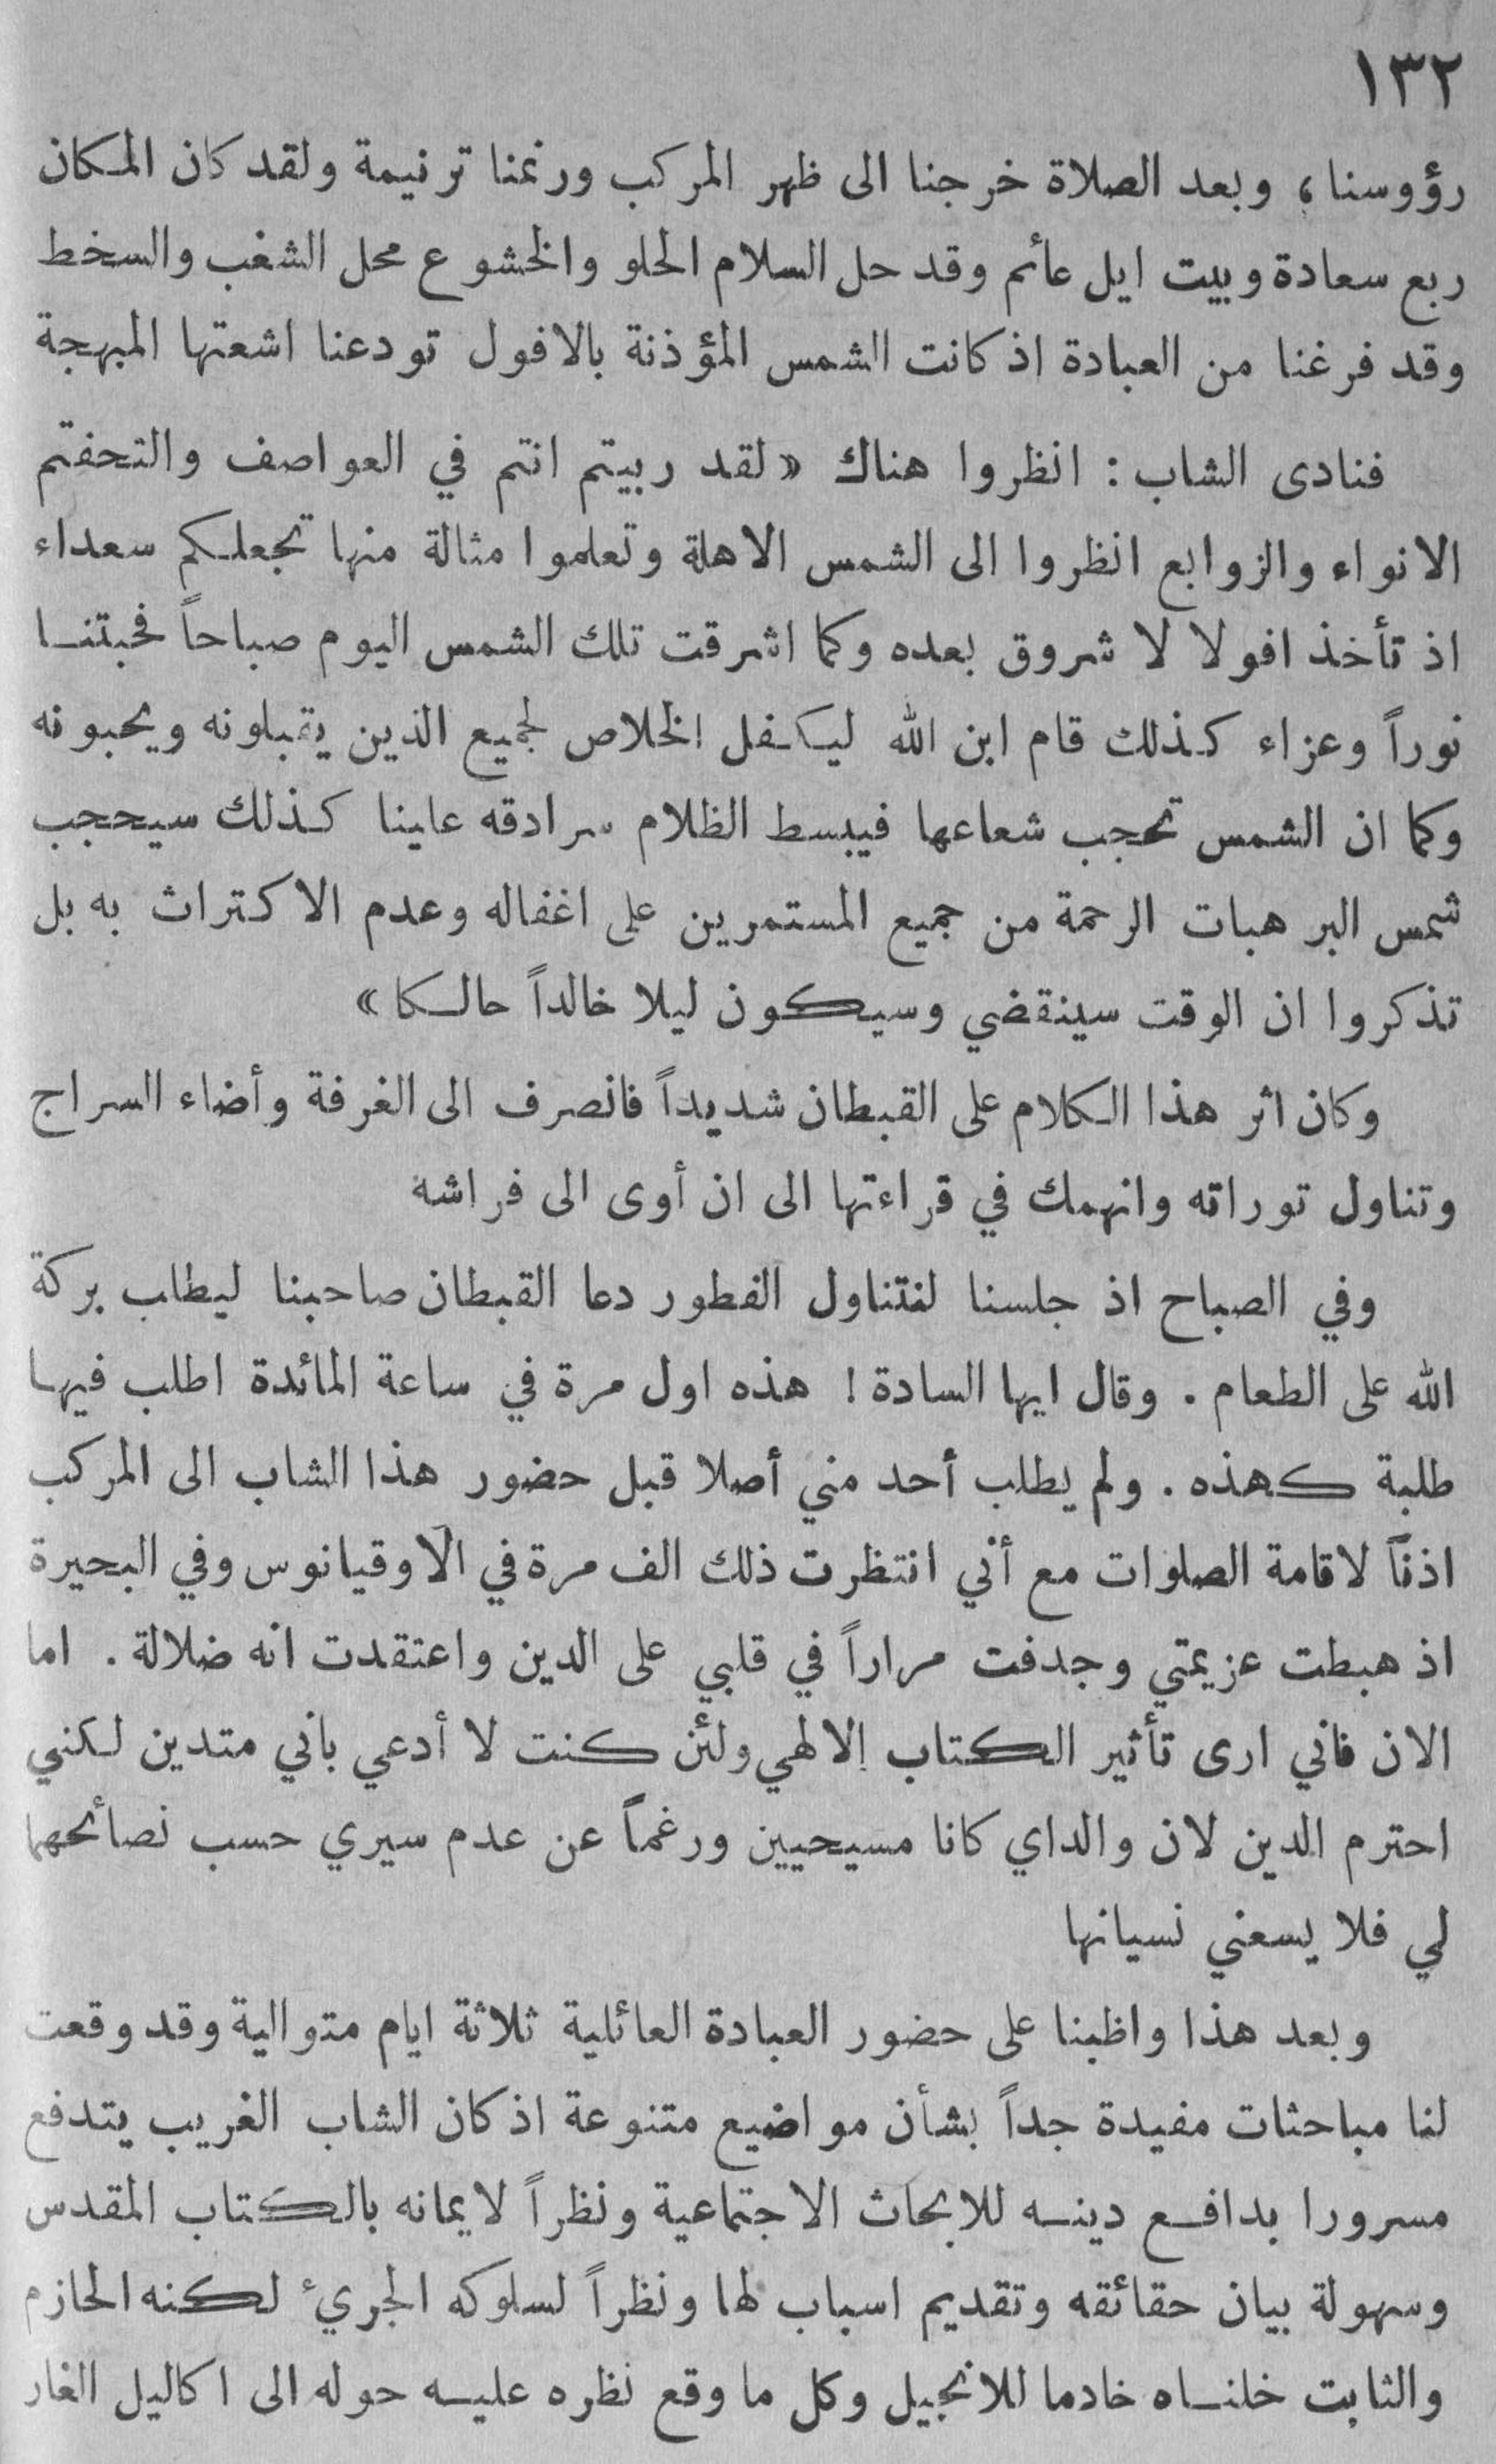 ١٣٢
رؤوسنا، وبعد الصلاة خرجنا الى ظهر المركب ورنمنا ترنيمة ولقد كان المكان
ربع سعادة وبيت ايل عأم وقد حل السلام الحلو والخشوع محل الشغب والسخط
وقد فرغنا من العبادة اذ كانت الشمس المؤذنة بالافول تودعنا اشعتها المبهجة
فنادى الشاب : انظروا هناك «لقد ربيتم انتم في العواصف والتحفتم
الانواء والزوابع انظروا الى الشمس الاهلة وتعلموا مثالة منها تجعلكم سعداء
اذ تأخذ افولا لا شروق بعده وكما اشرقت تلك الشمس اليوم صباحاً فحبتنا
نوراً وعزاء كذلك قام ابن الله ليكفل الخلاص لجميع الذين يقبلونه ويحبونه
وكما ان الشمس تحجب شعاعها فيبسط الظلام سرادقه علينا كذلك سيحجب
شمس البر هبات الرحمة من جميع المستمرين على اغفاله وعدم الاكتراث به بل
تذكروا ان الوقت سينقضي وسيكون ليلا خالداً حالكا»
وكان اثر هذا الكلام على القبطان شديداً فانصرف الى الغرفة وأضاء السراج
وتناول توراته وانهمك في قراءتها الى ان أوى الى فراشه
وفي الصباح اذ جلسنا لنتناول الفطور دعا القبطان صاحبنا ليطلب بركة
الله على الطعام . وقال ايها السادة ! هذه اول مرة في ساعة المائدة اطلب فيها
طلبة كهذه . ولم يطلب أحد مني أصلا قبل حضور هذا الشاب الى المركب
اذناً لاقامة الصلوات مع أني انتظرت ذلك الف مرة في الاوقيانوس وفي البحيرة
اذ هبطت عزيمتي وجدفت مراراً في قلبي على الدين واعتقدت انه ضلالة . اما
الان فاني ارى تأثير الكتاب الالهي ولئن كنت لا أدعي باني متدين لكني
احترم الدين لان والداي كانا مسيحيين ورغماً عن عدم سيري حسب نصائحهما
لي فلا يسعني نسيانها
وبعد هذا واظبنا على حضور العبادة العائلية ثلاثة ايام متوالية وقد وقعت
لنا مباحثات مفيدة جداً بشأن مواضيع متنوعة اذ كان الشاب الغريب يتدفع
مسرورا بدافع دينه للابحاث الاجتماعية ونظراً لايمانه بالكتاب المقدس
وسهولة بيان حقائقه وتقديم اسباب لها ونظراً لسلوكه الجريء لكنه الحازم
والثابت خلناه خادما للانجيل وكل ما وقع نظره عليه حوله الى اكاليل الغار